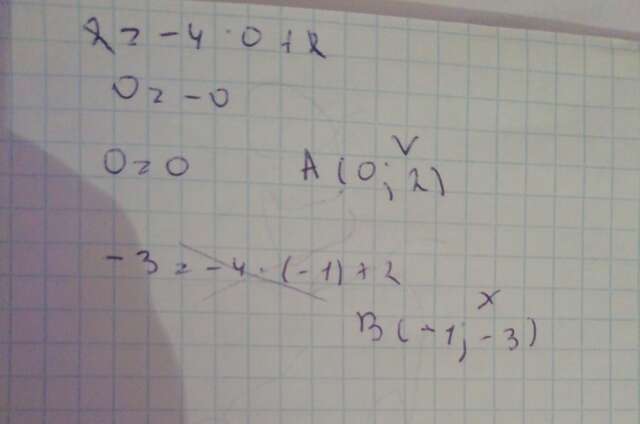 2 = -4 · 0 + 2
0 = -0
0 = 0
A (0; 2) V
-3 = -4 · (-1) + 2
B (-1; -3) X